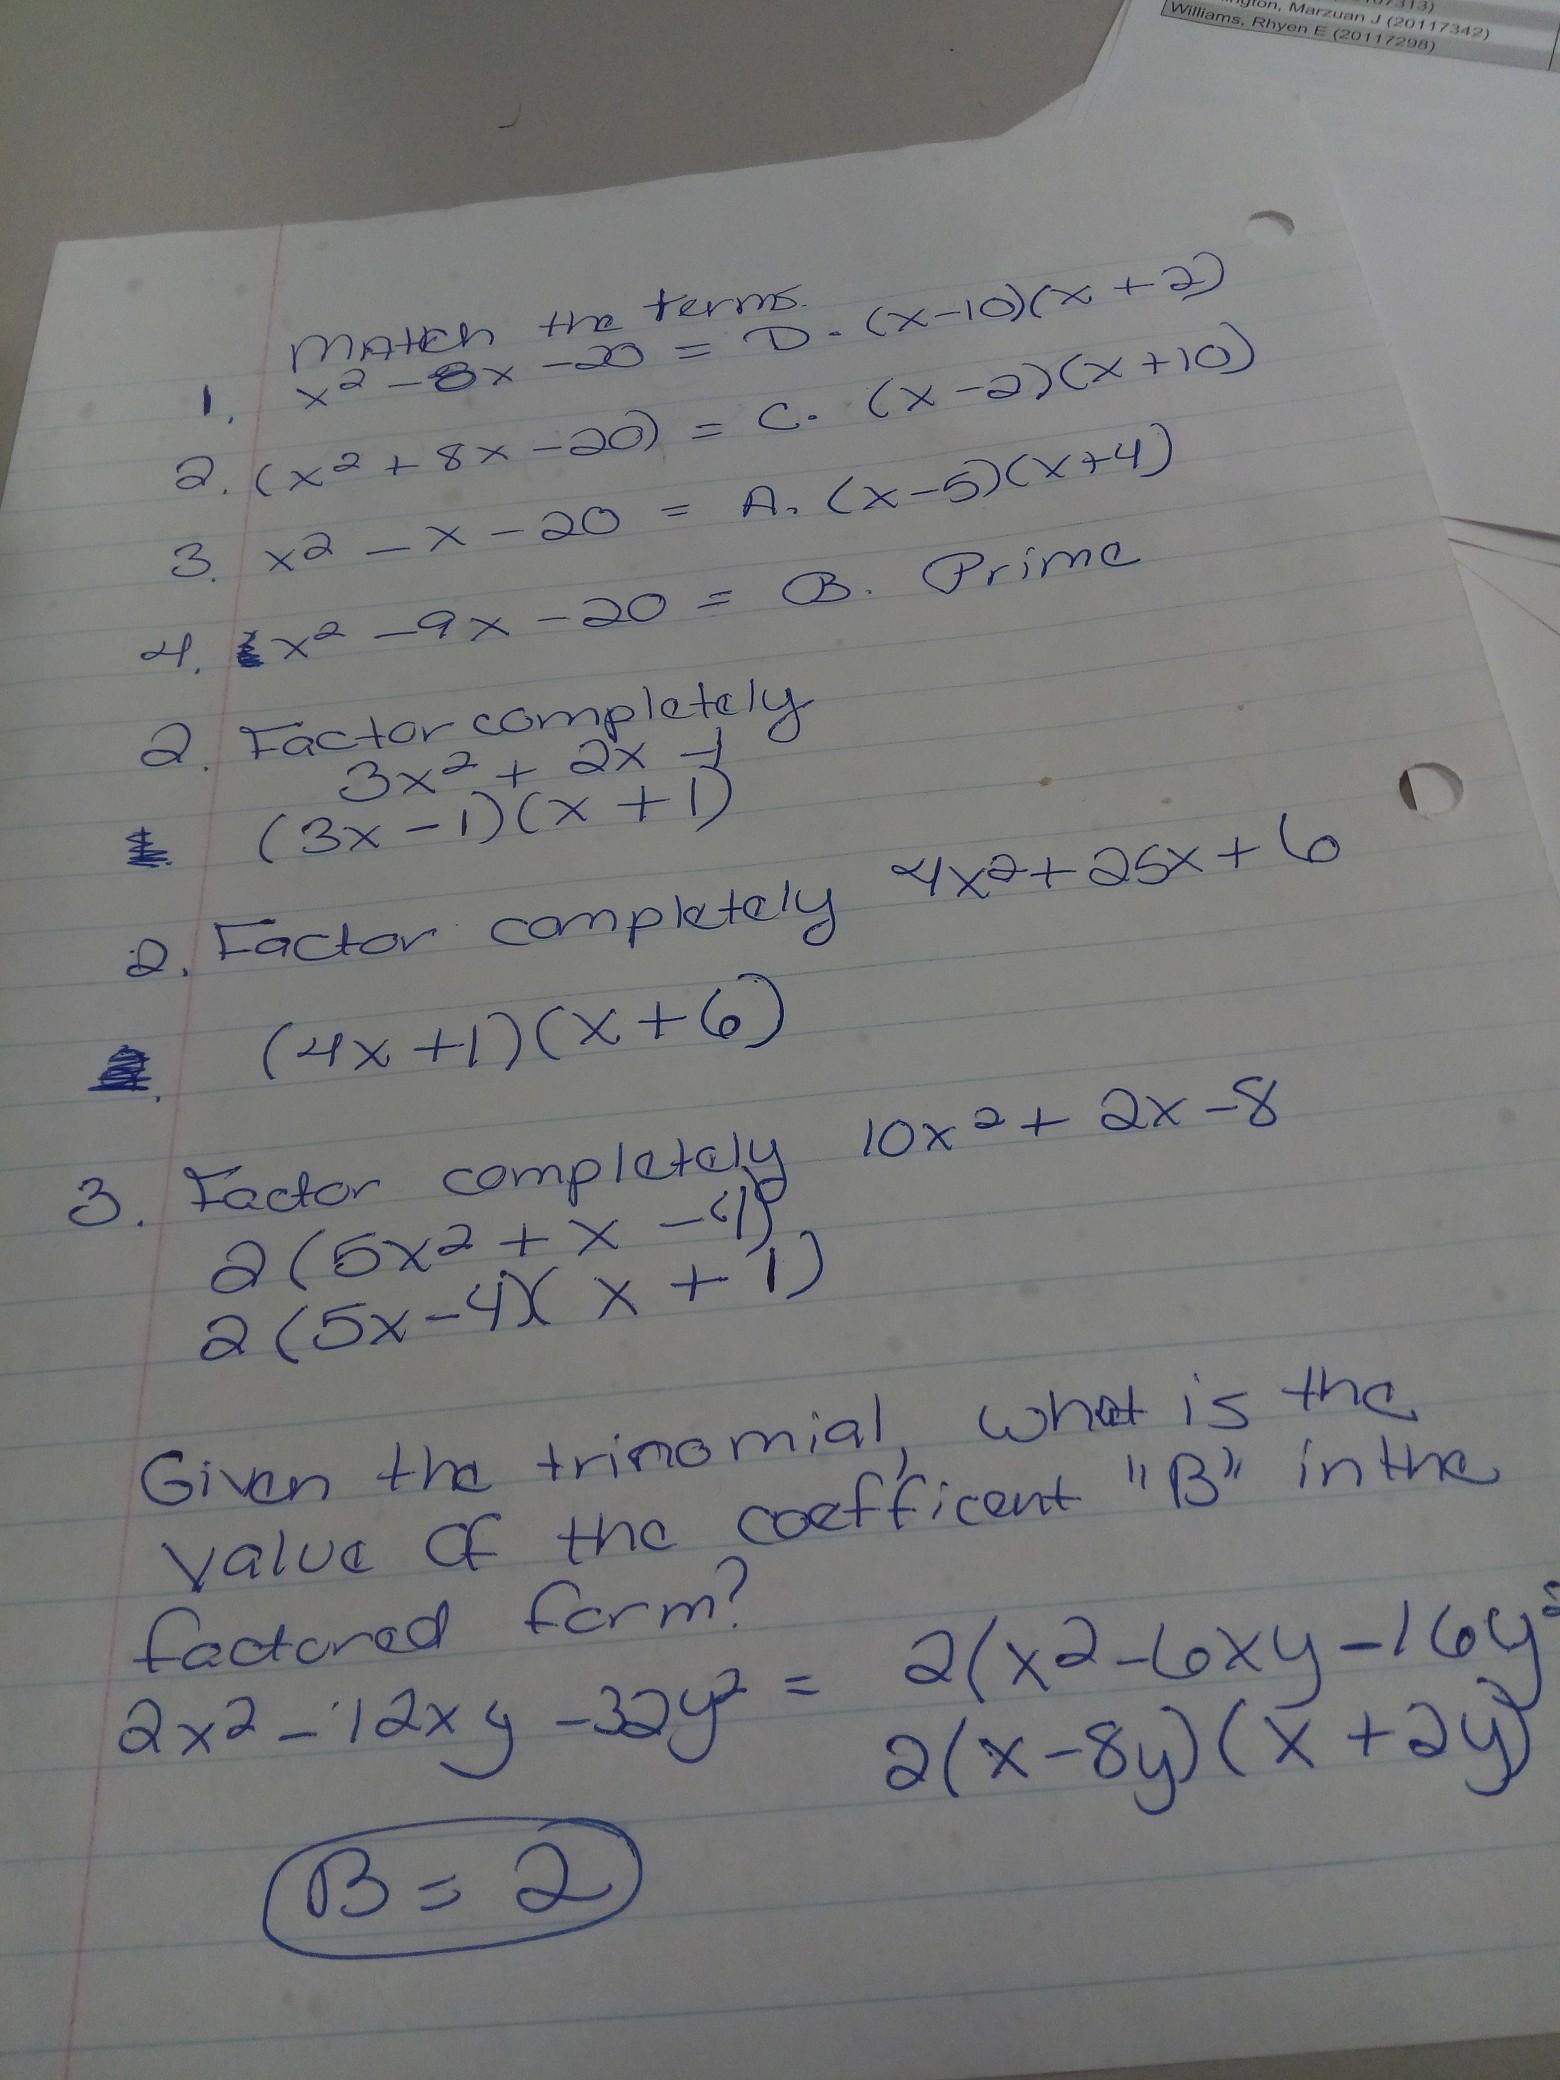 Marzuan J (20117342)
Williams, Rhyen E (20117298)
Match the terms.
1. x² - 8x - 20 = D. (x-10)(x+2)
2. (x² + 8x - 20) = C. (x-2)(x+10)
3. x² - x - 20 = A. (x-5)(x+4)
4. x² - 9x - 20 = B. Prime
2. Factor completely
3x² + 2x - 1
(3x-1)(x+1)
2. Factor completely 4x² + 25x + 6
(4x+1)(x+6)
3. Factor completely 10x² + 2x - 8
2(5x² + x - 4)
2(5x-4)(x+1)
Given the trinomial, what is the
value of the coefficent "B" in the
factored form?
2x² - 12xy - 32y² = 2(x² - 6xy - 16y²
2(x-8y)(x+2y)
B = 2